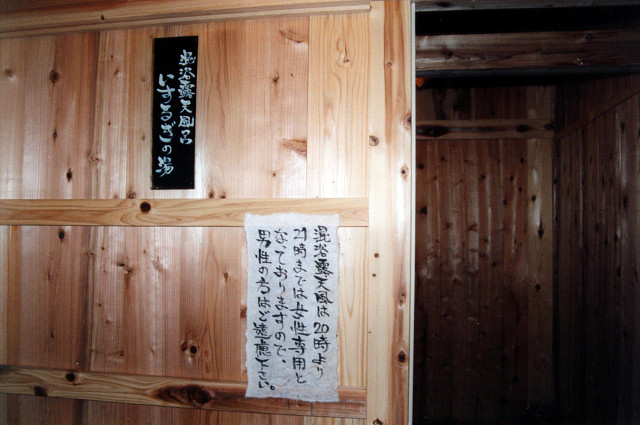 混浴露天風呂
いするぎの湯
混浴露天風は20時より
21時までは女性専用と
なっておりますので、
男性の方はご遠慮下さい。